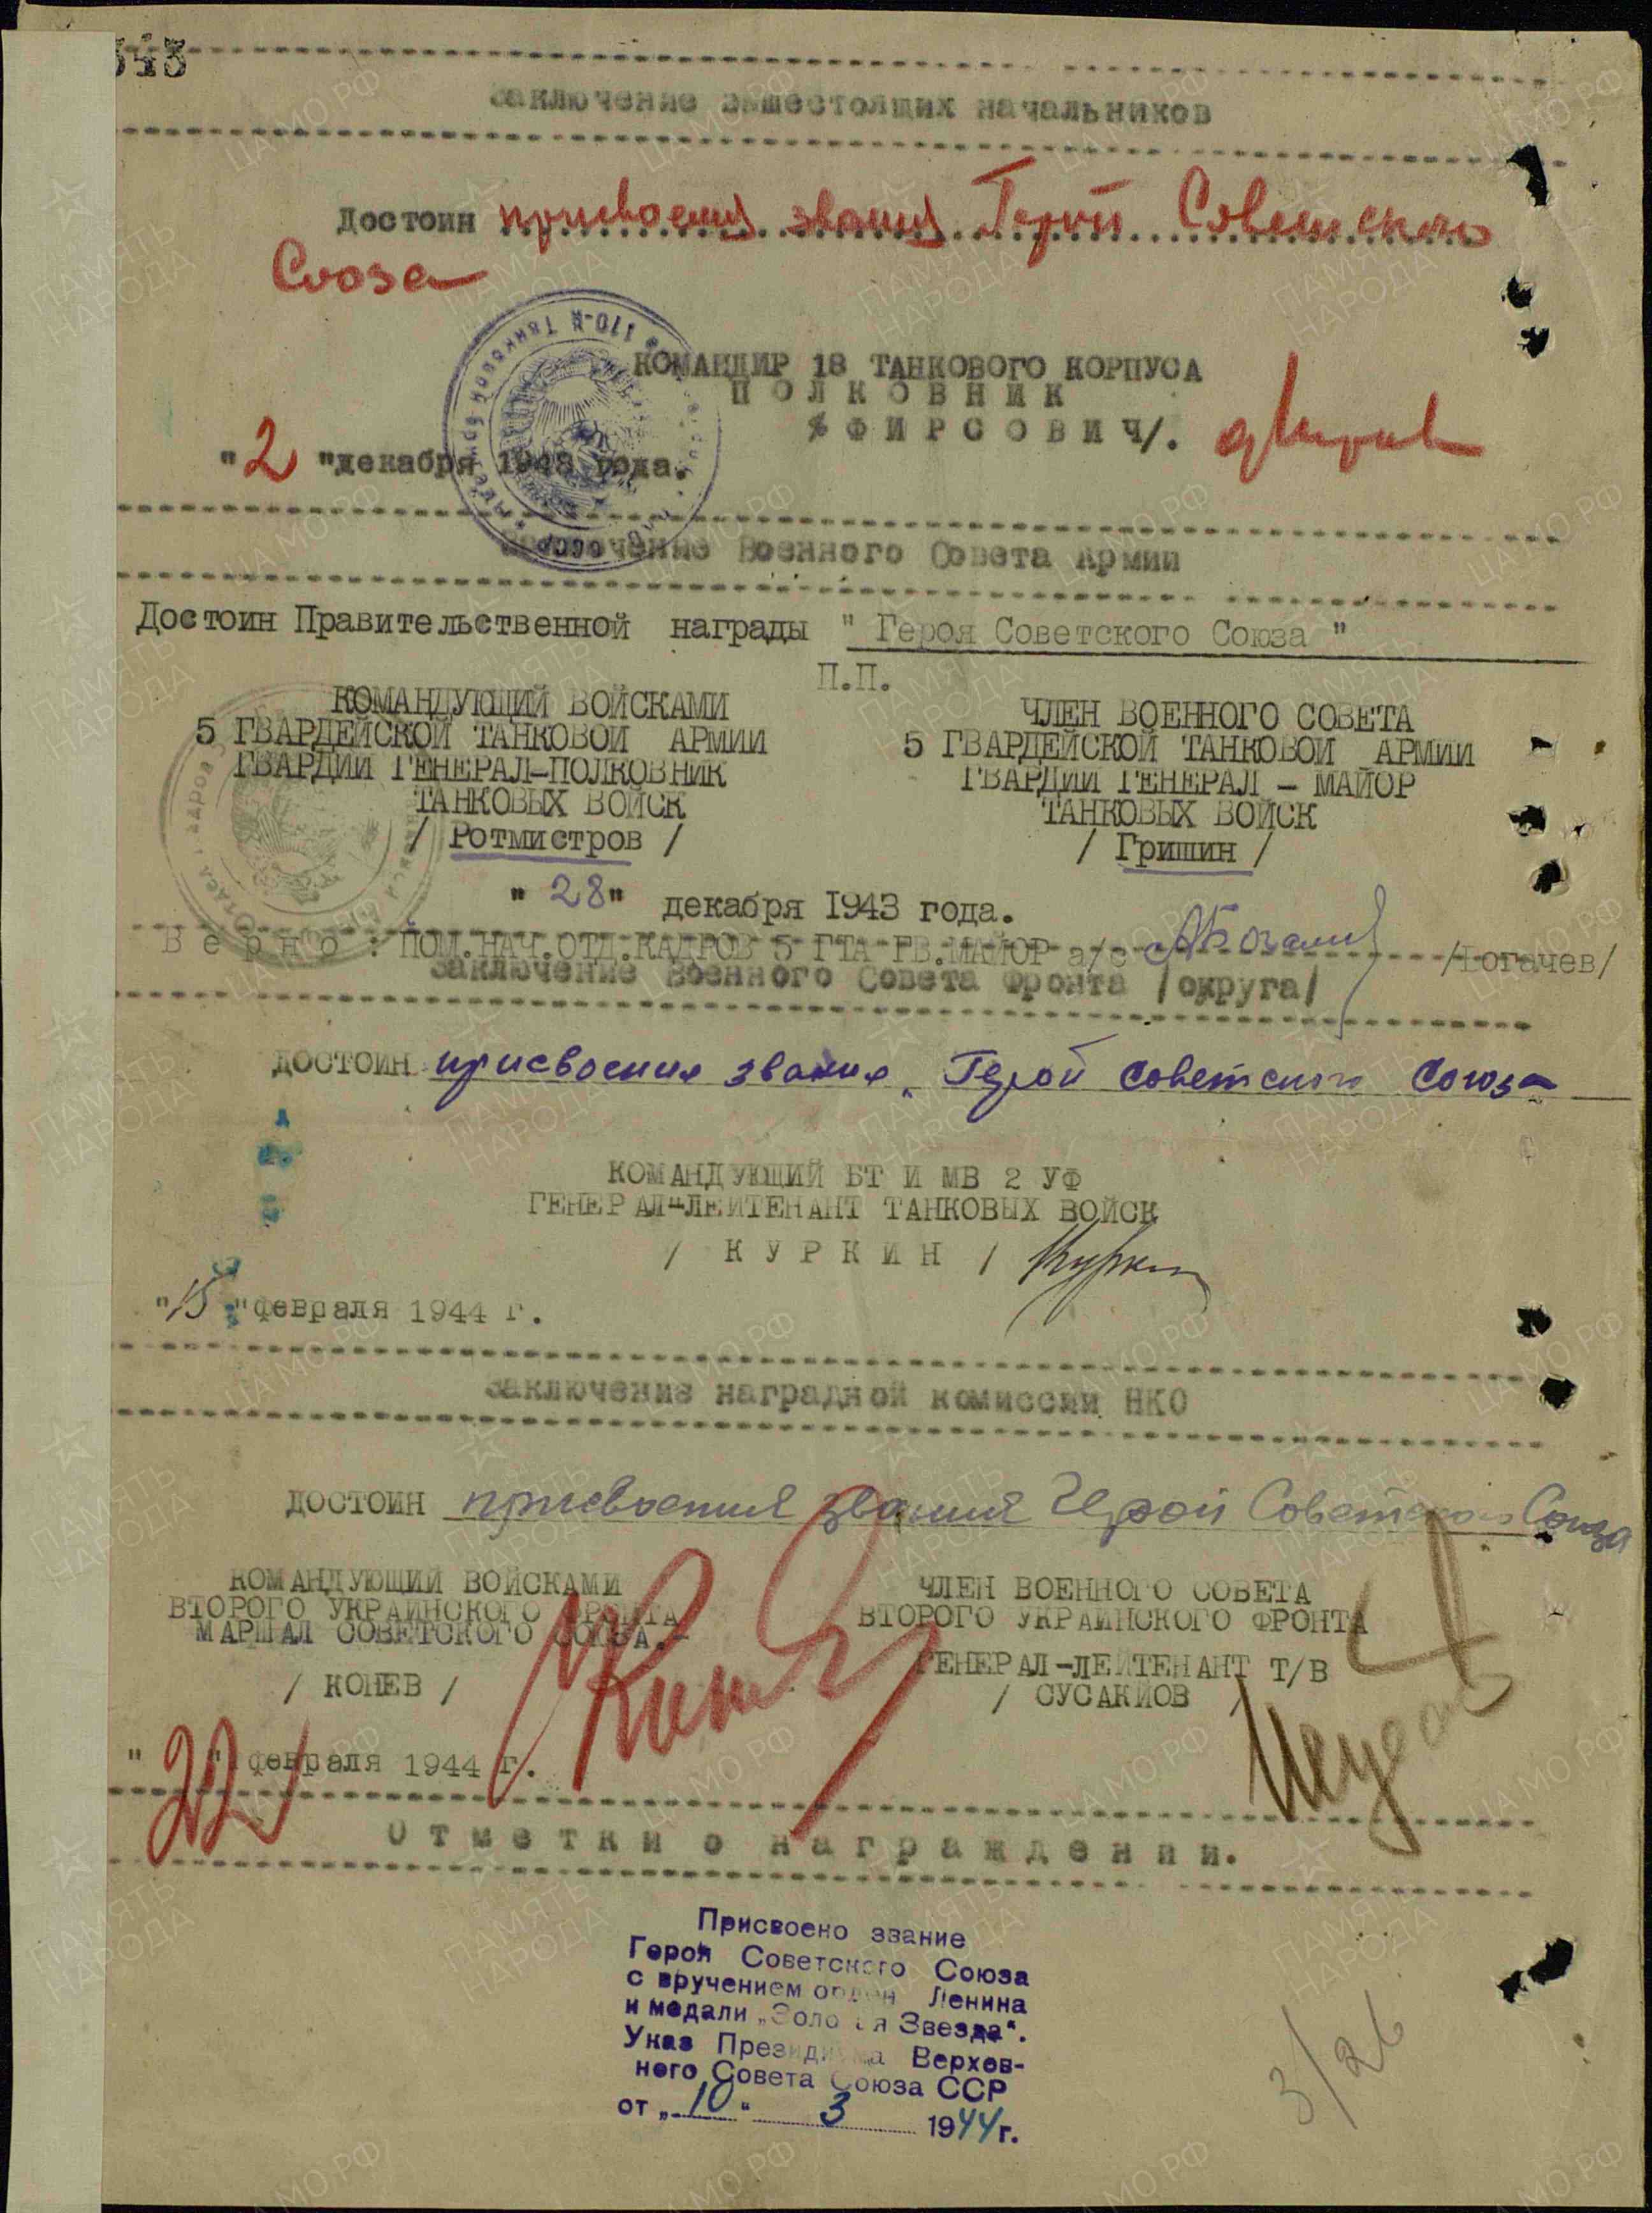 343
Заключение вышестоящих начальников
Достоин присвоения звания Герой Советского
Союза
КОМАНДИР 18 ТАНКОВОГО КОРПУСА
ПОЛКОВНИК
/ФИРСОВИЧ/.
"2" декабря 1943 года.
Заключение Военного Совета Армии
Достоин Правительственной награды "Героя Советского Союза"
П.П.
КОМАНДУЮЩИЙ ВОЙСКАМИ
5 ГВАРДЕЙСКОЙ ТАНКОВОЙ АРМИИ
ГВАРДИИ ГЕНЕРАЛ-ПОЛКОВНИК
ТАНКОВЫХ ВОЙСК
/ Ротмистров /
ЧЛЕН ВОЕННОГО СОВЕТА
5 ГВАРДЕЙСКОЙ ТАНКОВОЙ АРМИИ
ГВАРДИИ ГЕНЕРАЛ - МАЙОР
ТАНКОВЫХ ВОЙСК
/ Гришин /
"28" декабря 1943 года.
Верно: ПОМ.НАЧ.ОТД.КАДРОВ 5 ГТА ГВ.МАЙОР а/с /Богачев/
Заключение Военного Совета Фронта /округа/
ДОСТОИН присвоения звания „Герой Советского Союза
КОМАНДУЮЩИЙ БТ И МВ 2 УФ
ГЕНЕРАЛ-ЛЕЙТЕНАНТ ТАНКОВЫХ ВОЙСК
/ КУРКИН /
"15" февраля 1944 г.
Заключение наградной комиссии НКО
ДОСТОИН присвоения звания Герой Советского Союза
КОМАНДУЮЩИЙ ВОЙСКАМИ
ВТОРОГО УКРАИНСКОГО ФРОНТА
МАРШАЛ СОВЕТСКОГО СОЮЗА.-
/ КОНЕВ /
ЧЛЕН ВОЕННОГО СОВЕТА
ВТОРОГО УКРАИНСКОГО ФРОНТА
ГЕНЕРАЛ-ЛЕЙТЕНАНТ Т/В
/ СУСАЙКОВ /
"22" февраля 1944 г.
Отметки о награждении.
Присвоено звание
Героя Советского Союза
с вручением орден Ленина
и медали „Золотая Звезда“.
Указ Президиума Верхов-
ного Совета Союза ССР
от „10“ 3 1944 г.
3/26
ПАМЯТЬ НАРОДА
ЦАМО РФ